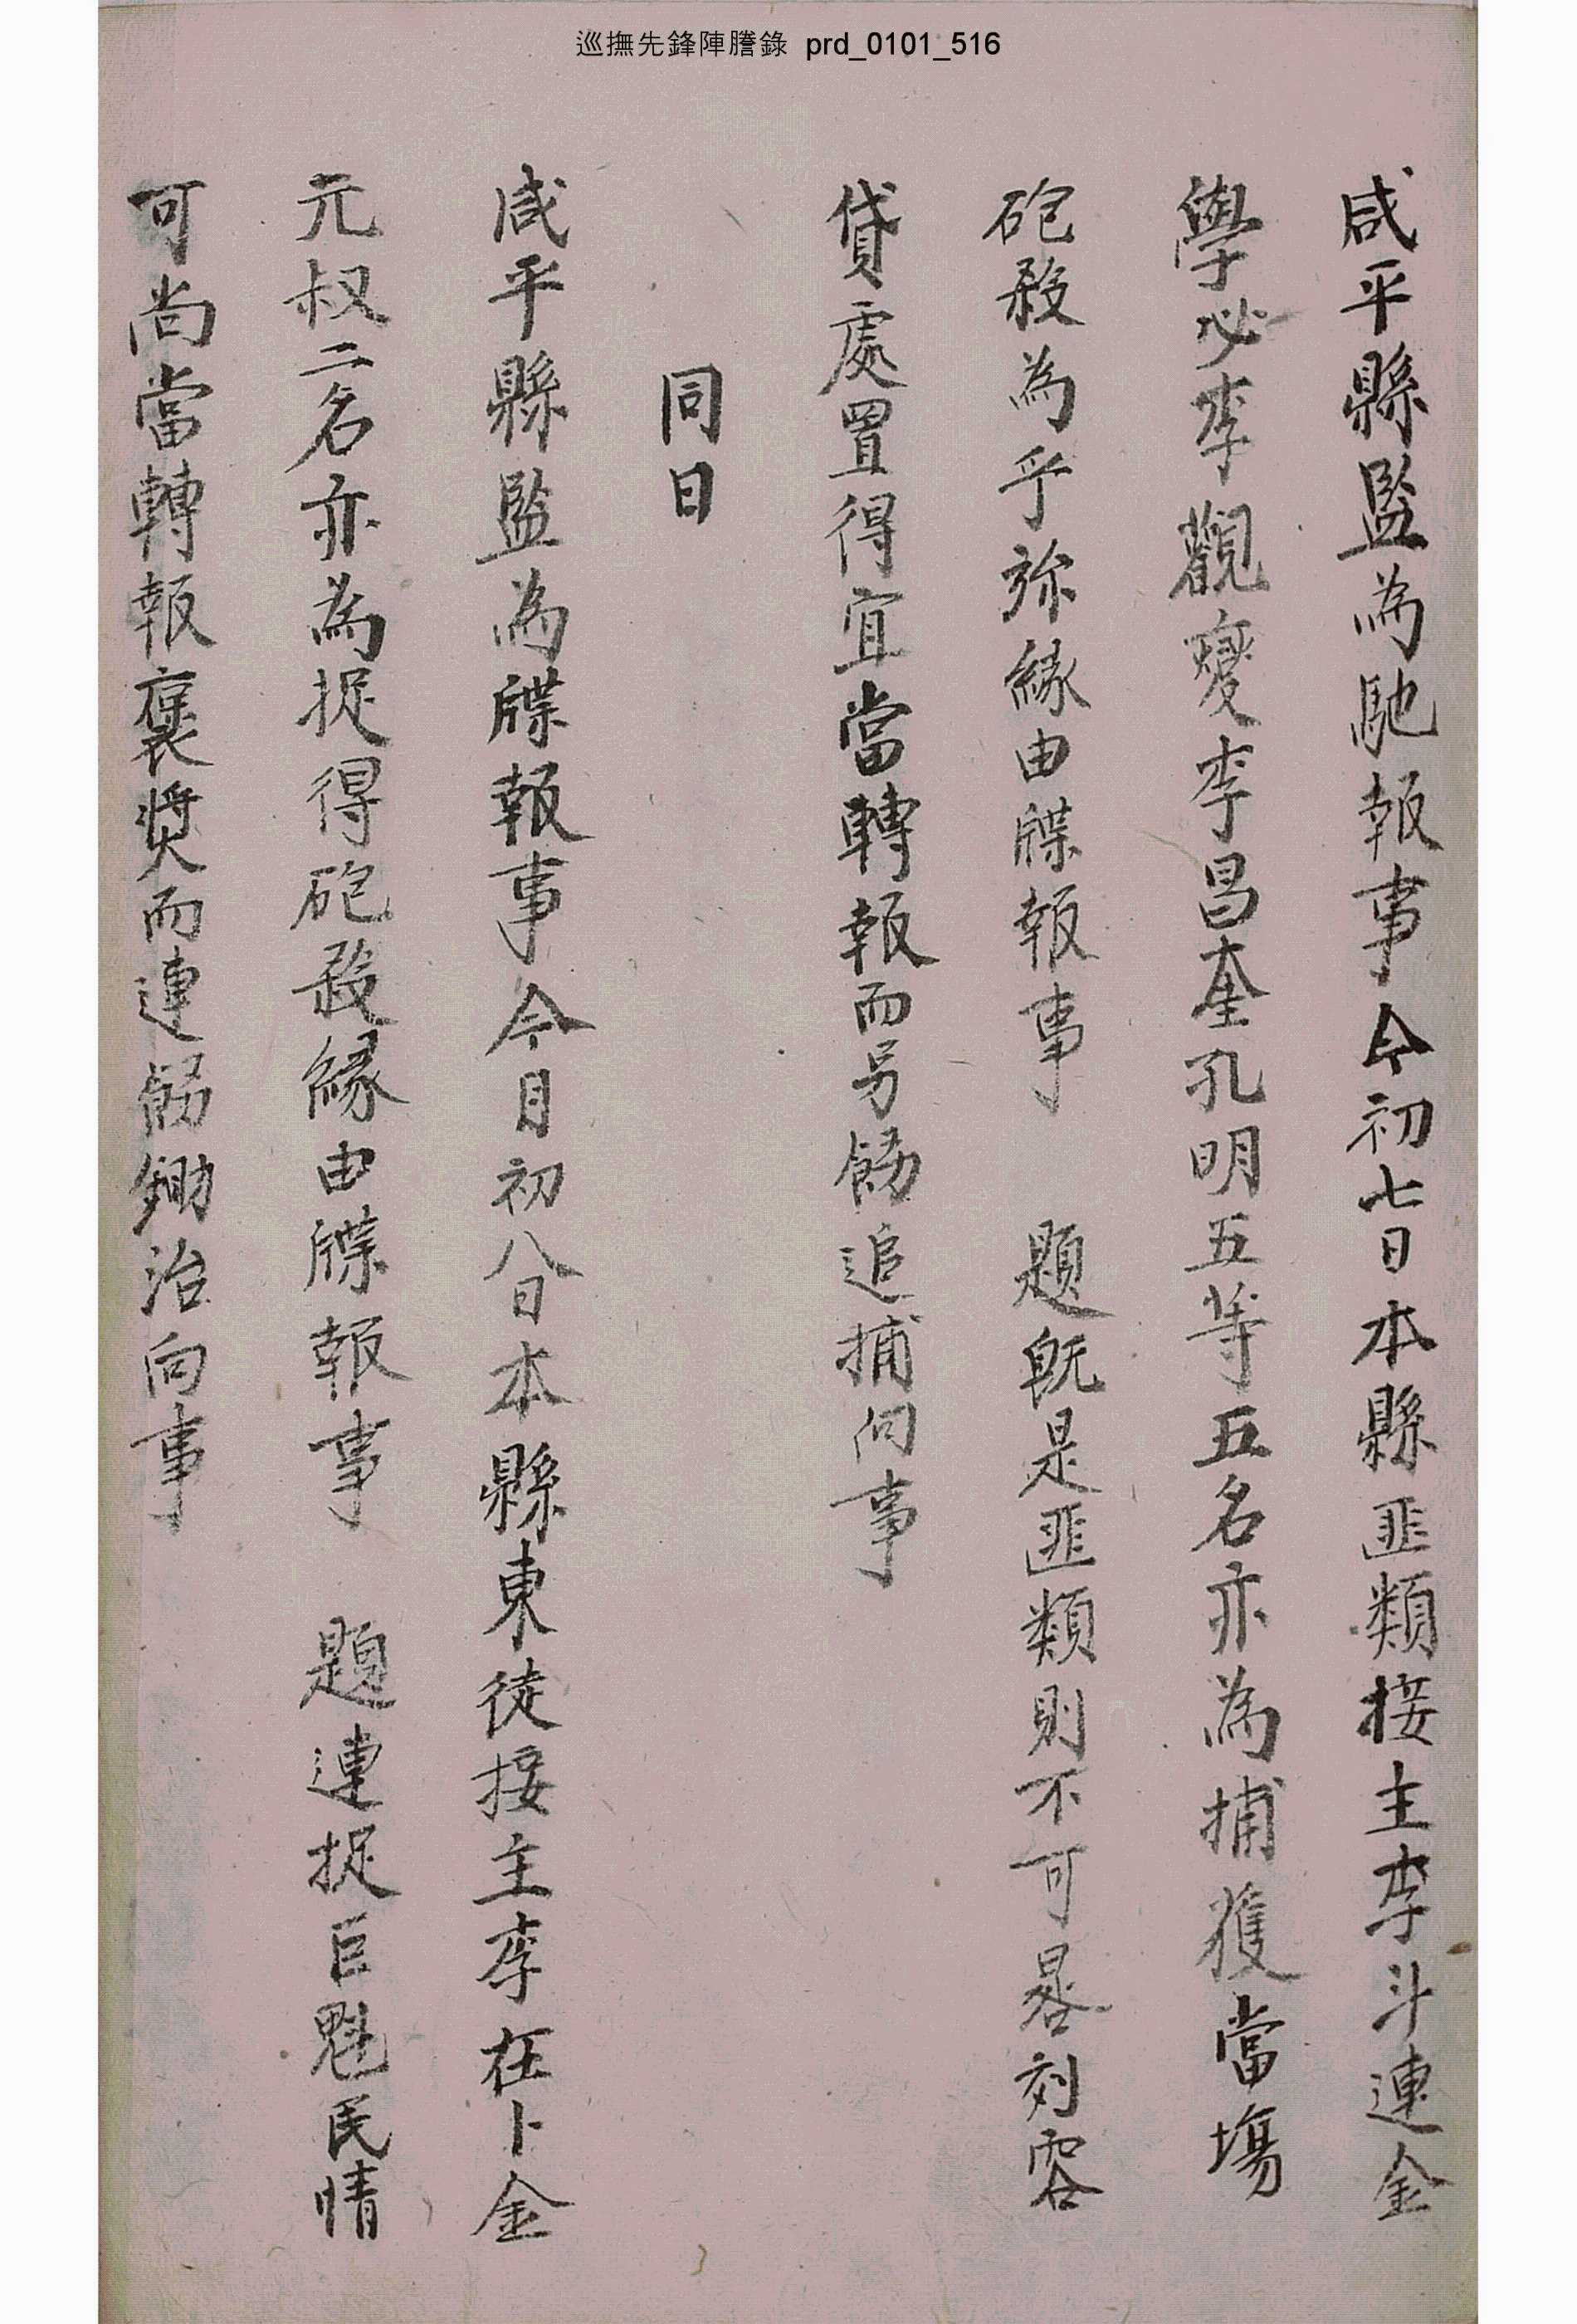 巡撫先鋒陣謄錄 prd_0101_516
咸平縣監為馳報事今初七日本縣匪類接主李斗連金
學必李觀變李昌奎孔明五等五名亦為捕獲當塲
砲殺為乎弥緣由牒報事 題旣是匪類則不可晷刻容
貸處置得宜當轉報而另飭追捕向事
同日
咸平縣監為牒報事今月初八日本縣東徒接主李在卜金
元叔二名亦為捉得砲殺緣由牒報事 題連捉巨魁民情
可尚當轉報褒奬而連飭鋤治向事